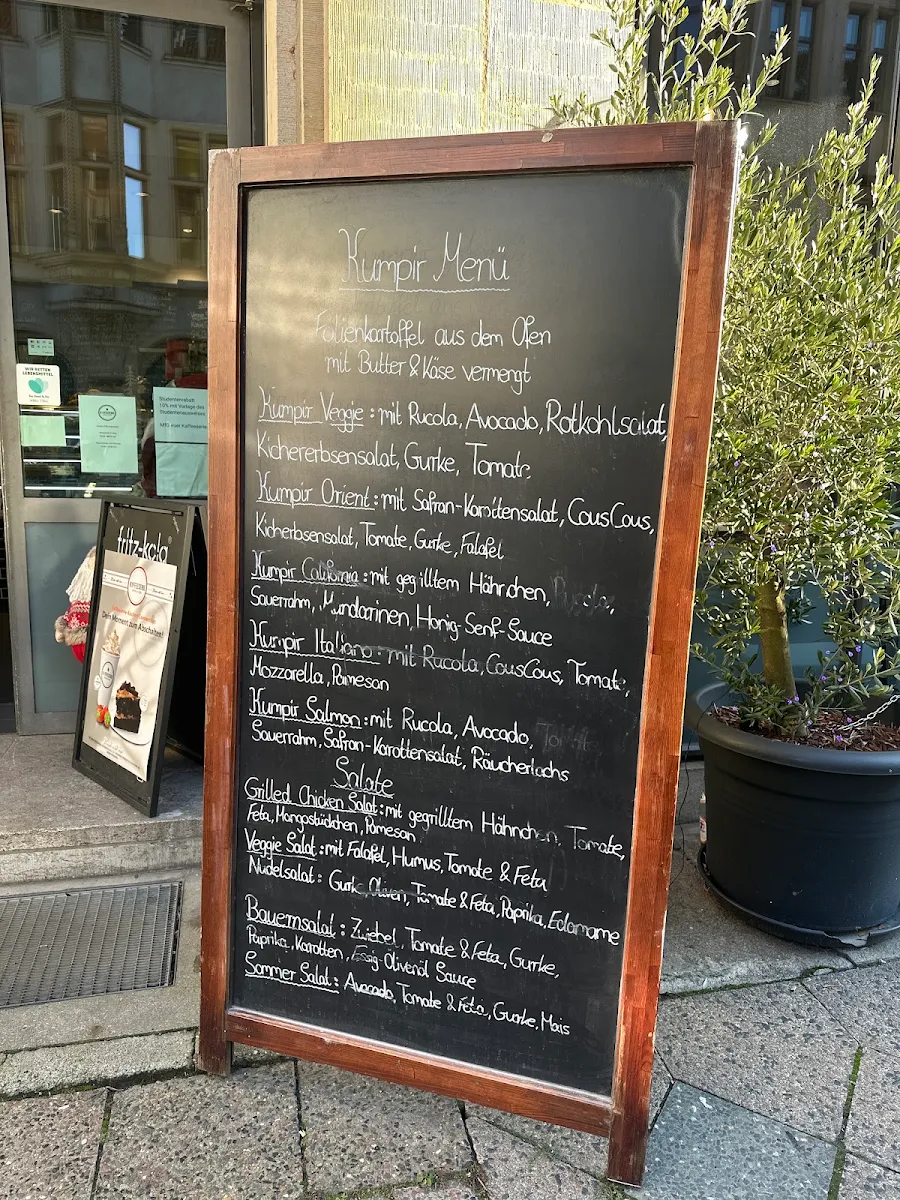 Kumpir Menü
Folienkartoffel aus dem Ofen
mit Butter & Käse vermengt
Kumpir Veggie : mit Rucola, Avocado, Rotkohlsalat,
Kichererbsensalat, Gurke, Tomate
Kumpir Orient : mit Safran-Karottensalat, CousCous,
Kicherbsensalat, Tomate, Gurke, Falafel
Kumpir California : mit gegrilltem Hähnchen, Rucola,
Sauerrahm, Mandarinen, Honig-Senf-Sauce
Kumpir Italiano - mit Rucola, CousCous, Tomate,
Mozzarella, Parmesan
Kumpir Salmon : mit Rucola, Avocado, Tomate
Sauerrahm, Safran-Karottensalat, Räucherlachs
Salate
Grilled Chicken Salat : mit gegrilltem Hähnchen, Tomate,
Feta, Mangostückchen, Parmesan
Veggie Salat : mit Falafel, Humus, Tomate & Feta
Nudelsalat : Gurke, Oliven, Tomate & Feta, Paprika, Edamame
Bauernsalat : Zwiebel, Tomate & Feta, Gurke,
Paprika, Karotten, Essig-Olivenöl Sauce
Sommer Salat : Avocado, Tomate & Feta, Gurke, Mais
WIR RETTEN
LEBENSMITTEL
Studentenrabatt
10% mit Vorlage des
Studentenausweises
fritz-kola
Dein Moment zum Abschalten!